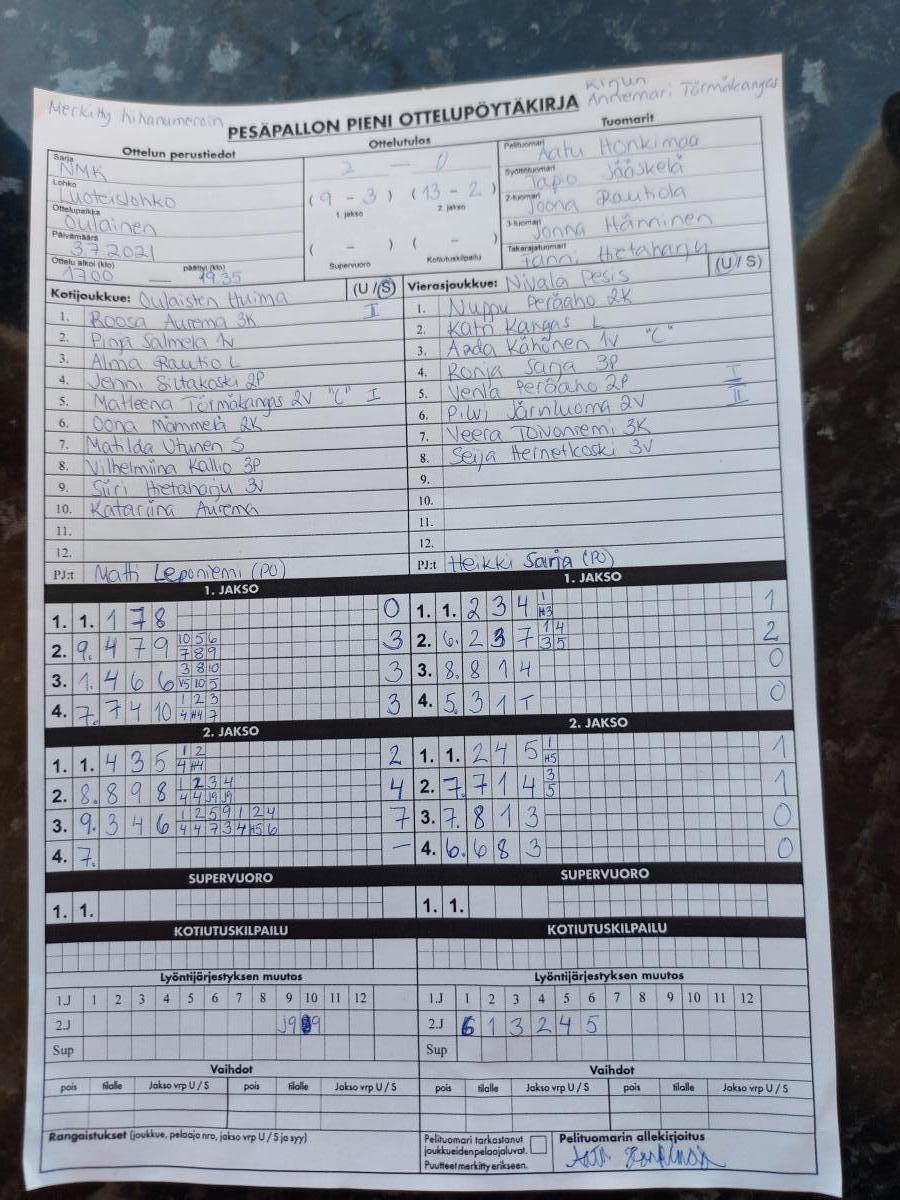 Merkitty hihanumeroin
Kirjun
Annemari Törmäkangas
PESÄPALLON PIENI OTTELUPÖYTÄKIRJA
Ottelun perustiedot
Ottelutulos
Tuomarit
Sarja NMK
Lohko Luoteislohko
Ottelupaikka Oulainen
Päivämäärä 3.7.2021
Ottelu alkoi (klo) 17.00 — päättyi (klo) 19.35
2 - 0
( 9 - 3 ) ( 13 - 2 )
1. jakso 2. jakso
( - ) ( - )
Supervuoro Kotiutuskilpailu
Pelituomari Aatu Honkimaa
Syöttötuomari Tapio Jääskelä
2-tuomari Joona Rautiola
3-tuomari Jonna Hänninen
Takarajatuomari Hietaharju
Kotijoukkue: Oulaisten Huima (U/S)
1. Roosa Aurema 3K II
2. Pinja Salmela 1v
3. Alma Rautio L
4. Jenni Siltakoski 2P
5. Matleena Törmäkangas 2V "C" I
6. Oona Mämmelä 2K
7. Matilda Utunen S
8. Vilhelmiina Kallio 3P
9. Siiri Hietaharju 3V
10. Katariina Aurema
11.
12.
PJ:t Matti Leponiemi (PO)
Vierasjoukkue: Nivala Pesis (U/S)
1. Nuppu Peräaho 2K
2. Katri Kangas L
3. Aada Kähönen 1v "C"
4. Ronja Sarja 3P
5. Venla Peräaho 2P I
6. Pilvi Järnluoma 2V II
7. Veera Toivoniemi 3K
8. Seija Hernetkoski 3V
9.
10.
11.
12.
PJ:t Heikki Sarja (PO)
1. JAKSO
1. 1. 1 7 8 0
2. 9. 4 7 9 10 5 6 3
7 8 9
3. 1. 4 6 6 3 8 10 3
V5 10 5
4. 7. 7 4 10 1 2 3 3
4 H4 7
1. JAKSO
1. 1. 2 3 4 1 1
H3
2. 6. 2 3 7 1 4 2
3 5
3. 8. 8 1 4 0
4. 5. 3 1 T 0
2. JAKSO
1. 1. 4 3 5 1 2 2
4 H4
2. 8. 8 9 8 1 2 3 4 4
4 4 J9 J9
3. 9. 3 4 6 1 2 5 9 1 2 4 7
4 4 7 3 4 H5 6
4. 7. —
2. JAKSO
1. 1. 2 4 5 1 1
H5
2. 7. 7 1 4 3 1
5
3. 7. 8 1 3 0
4. 6. 6 8 3 0
SUPERVUORO
1. 1.
SUPERVUORO
1. 1.
KOTIUTUSKILPAILU
KOTIUTUSKILPAILU
Lyöntijärjestyksen muutos
1.J 1 2 3 4 5 6 7 8 9 10 11 12
2.J J9 9
Sup
Lyöntijärjestyksen muutos
1.J 1 2 3 4 5 6 7 8 9 10 11 12
2.J 6 1 3 2 4 5
Sup
Vaihdot
pois tilalle Jakso vrp U / S pois tilalle Jakso vrp U / S
Vaihdot
pois tilalle Jakso vrp U / S pois tilalle Jakso vrp U / S
Rangaistukset (joukkue, pelaaja nro, jakso vrp U / S ja syy)
Pelituomari tarkastanut
joukkueiden pelaajaluvat.
Puutteet merkitty erikseen.
Pelituomarin allekirjoitus